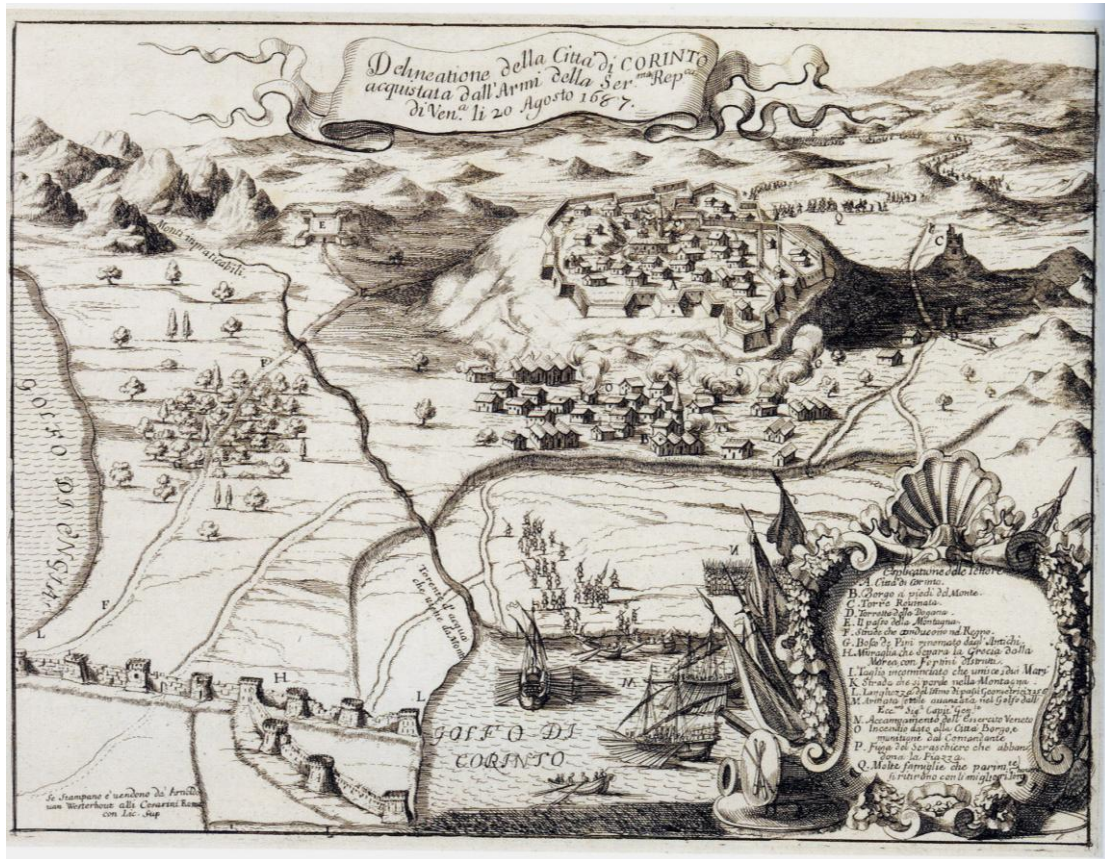 Delineatione della Citta di CORINTO
acquistata dall'Armi della Ser.ma Rep.ca
di Ven.a li 20 Agosto 1687.
E
Q
C
Monti inpraticabili
K
F
O
GOLFO DI ENGIA
F
N
Torente d'acqua
che viene dal Monte
L
H
L
M
GOLFO DI
CORINTO
I
Se Stampano e uendono da Arnoldo
uan Westerhout alli Cesarini Roma
con Lic. Sup
L
Explicatione delle lettere
A. Citta di Corinto.
B. Borgo a piedi del Monte.
C. Torre Rouinata.
D. della Dogana.
E. Il passo della Montagna.
F. Strade che conducono nel Regno.
G. Bosco di Pini rinomato dagl'Antichi.
H. Muraglia che separa la Grecia dalla
Morea, con Fortini distruti.
I. Taglio incominciato che unisce i dui Mari
K. Strada che si perde nella Montagna.
L. Larghezza del Istmo di passi Geometrici
M. Armata sotile auanzata nel Golfo dall
Ecc.mo Sig.r Capit.n Gen.le
N. Accampamento dell'Essercito Veneto
O Incendio dato alla Città, Borgo, e
munitione dal Comandante
P. Fuga del Seraschiere che abban
dona la Piazza.
Q. Molte famiglie che
si ritirono con li migliori